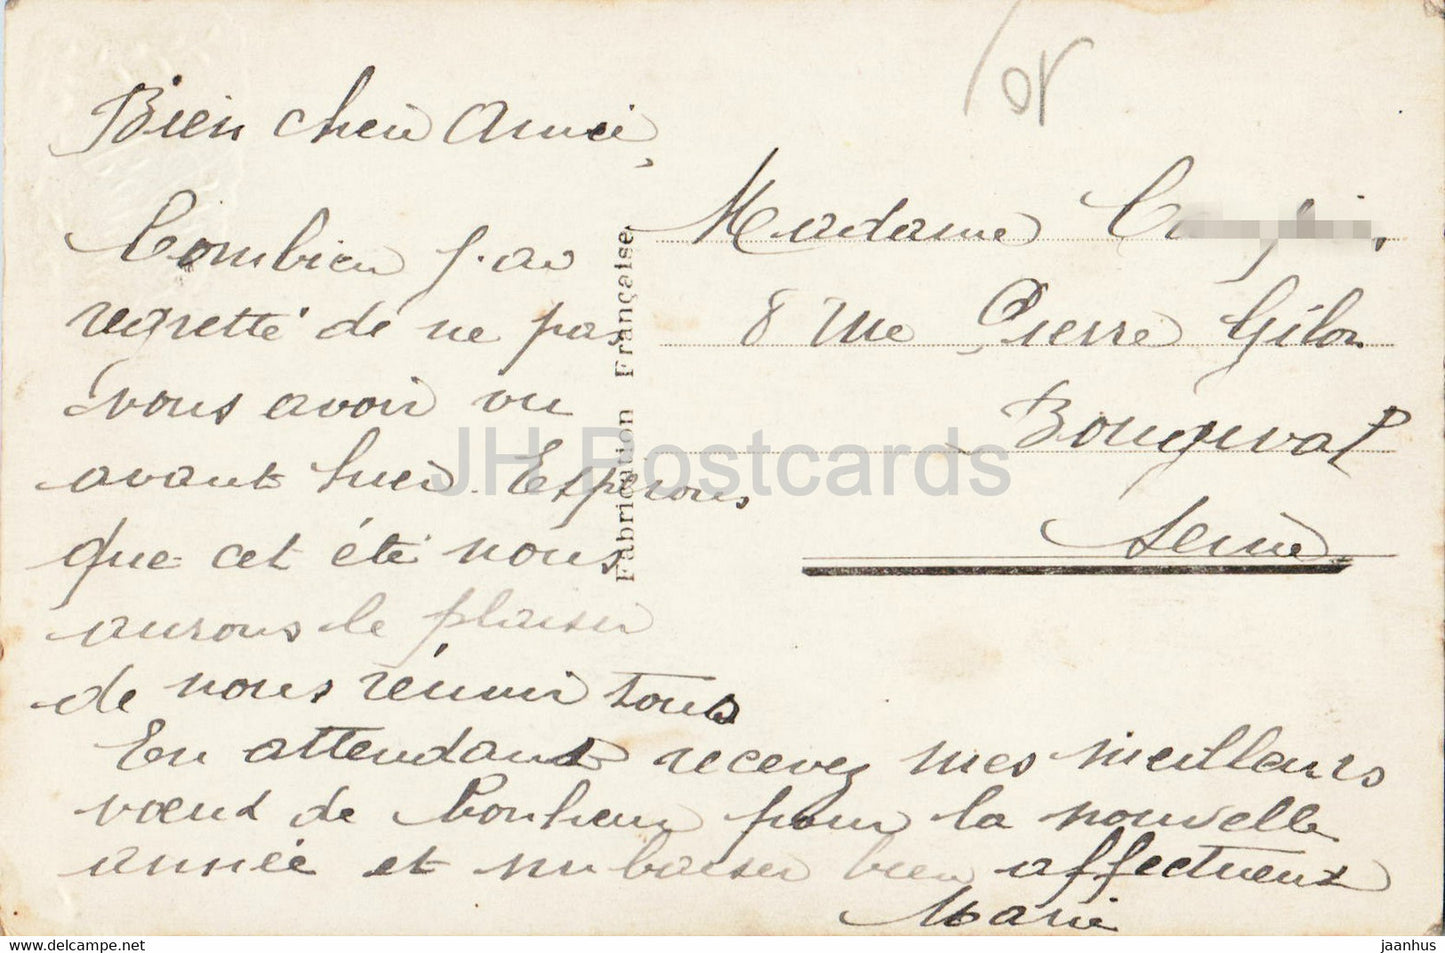 or
Bien chère Amie,
Combien j'ai
regretté de ne pas
vous avoir vu
avant hier. Esperons
que cet été nous
aurons le plaisir
de nous réunir tous
En attendant recevez mes meilleurs
vœux de Bonheur pour la nouvelle
année et un baiser bien affectueux
Marie
Fabrication Française
Madame
8 rue Pierre Gilon
Bougival
Seine
JH Postcards
www.hippostcard.com
jaanhus